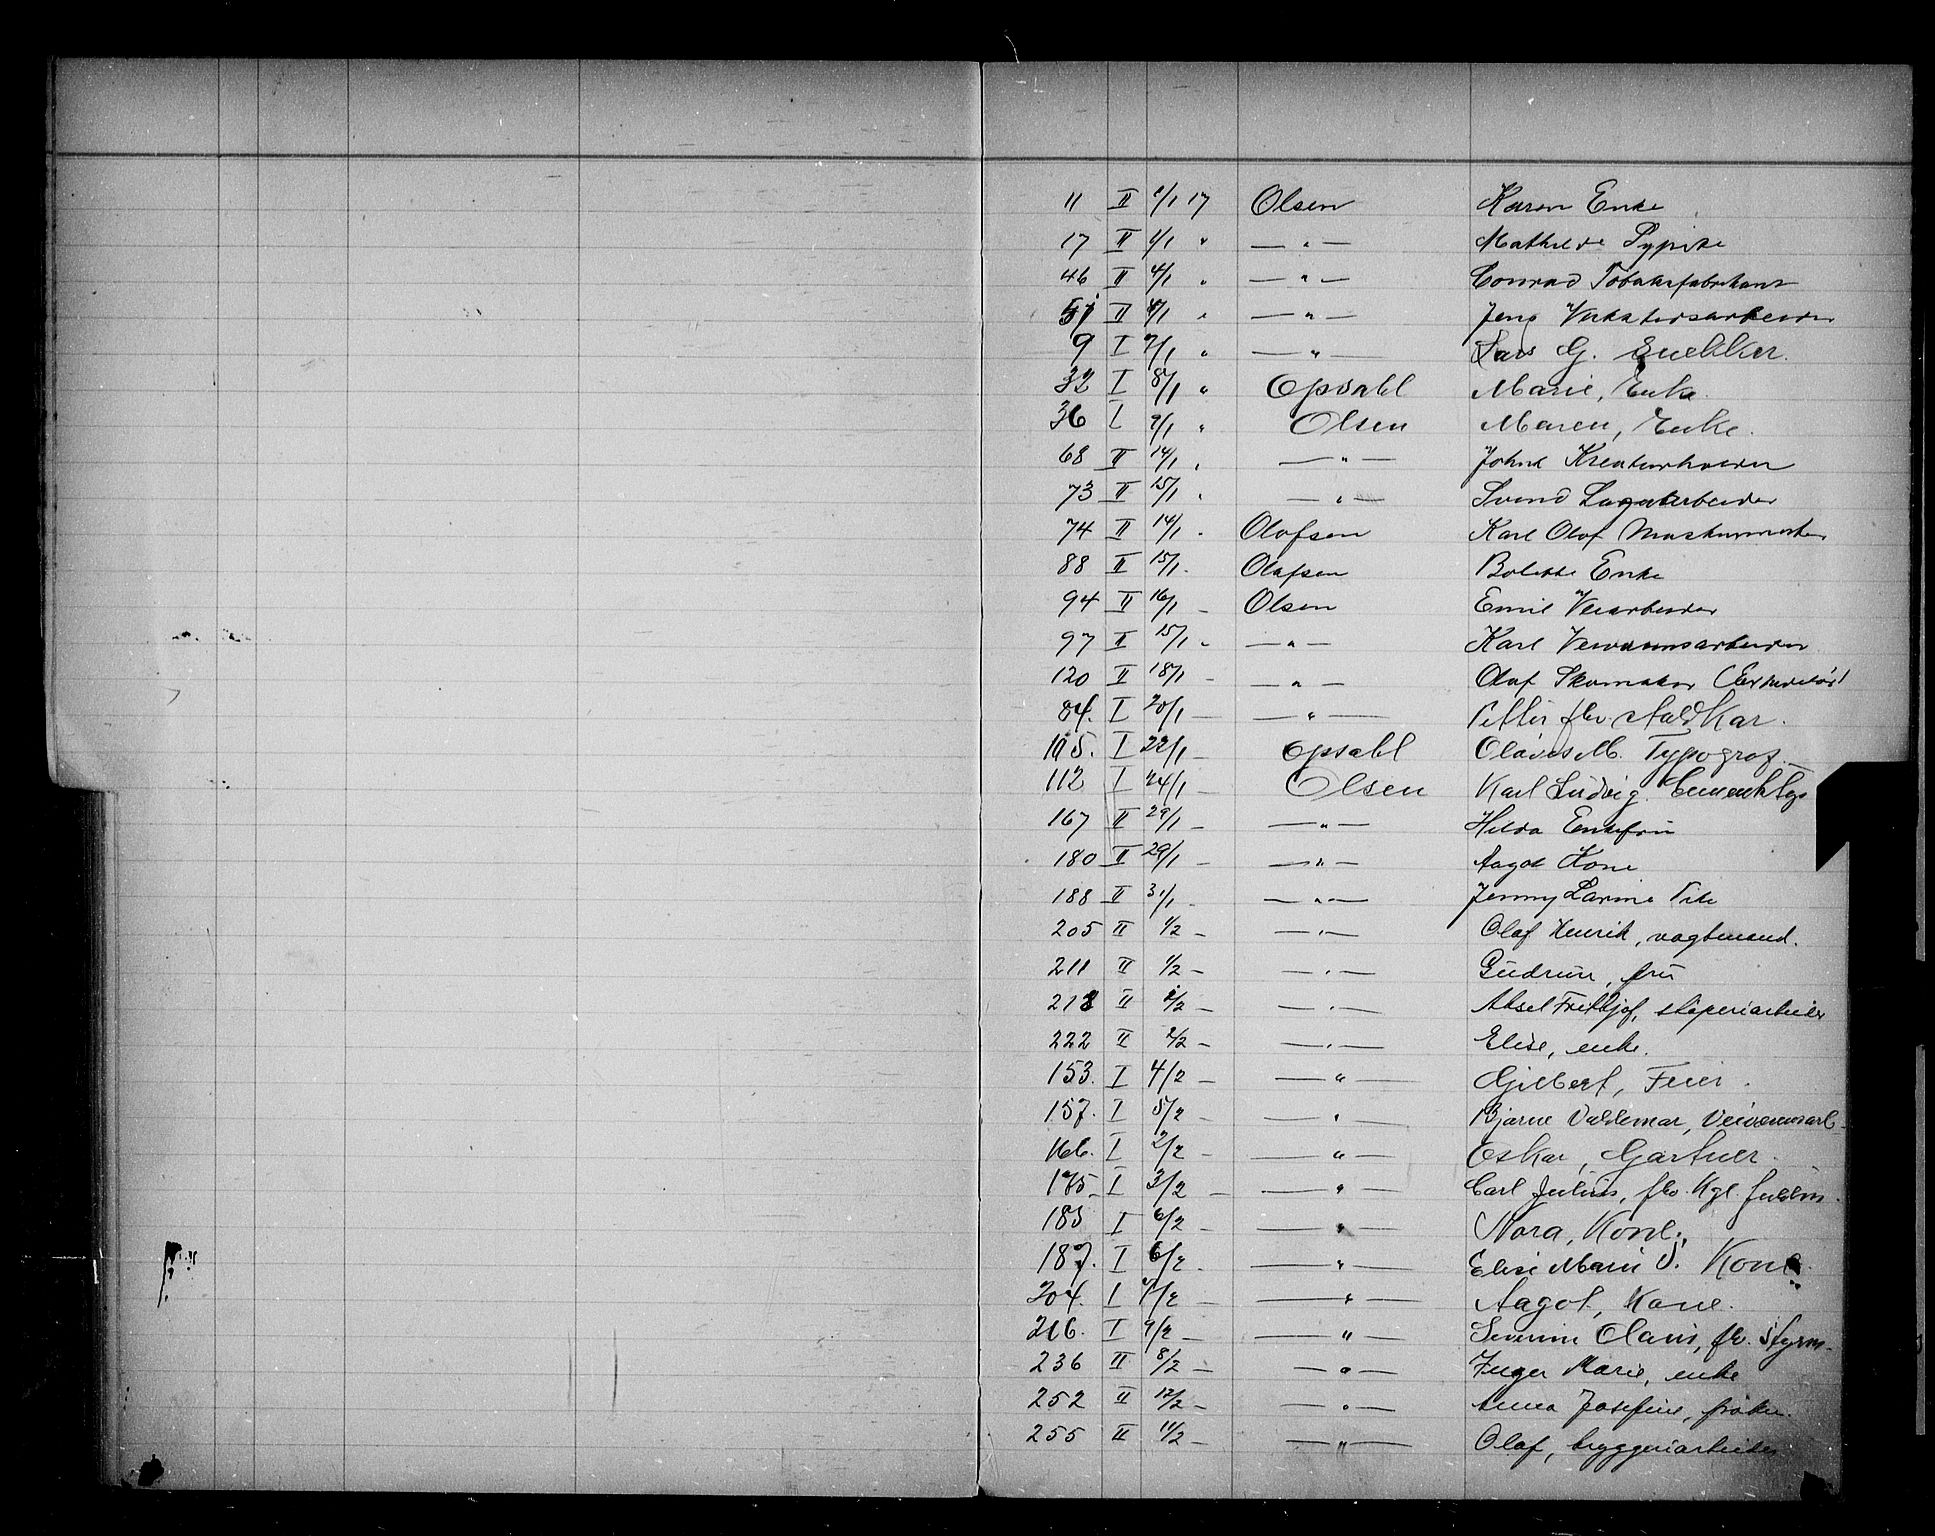 11 II 1/1 17 Olsen Karen Enke
17 II 4/1 " — " — Mathilde
46 II 4/1 " — " — Conrad Tobaksfabrikant
51 II 4/1 " — " — Jens
9 I 7/1 " — " — Lars G. Snekker.
32 I 8/1 " Opsahl Marie, Enke.
36 I 9/1 " Olsen Maren, Enke.
68 II 14/1 " — " — Johne Kreaturhandler
73 II 15/1 " — " — Svend Lagerarbeider
74 II 14/1 - Olafsen Karl Olaf Maskinmester
88 II 15/1 - Olafsen Bolette Enke
94 II 16/1 - Olsen Emil Veiarbeider
97 II 15/1 - — " — Karl Veivæsnsarbeider
120 II 18/1 - — " — Olaf Skomaker
84. I 20/1 — — " — Petter fhv. staldkar.
115. I 22/1 - Opsahl Olaves M. Typograf.
112 I 24/1 - Olsen Karl Ludvig.
167 II 29/1 - — " — Hilda Enkefru
180 II 29/1 - — " — Aagot Kone
188 II 31/1 - — " — Jenny Larine Pike
205 II 1/2 - — " — Olaf Henrik, vagtmand.
211 II 1/2 - — " — Gudrun, fru
213 II 2/2 - — " — Aksel Fritbjof, støperiarbeider
222 II 2/2 - — " — Elise, enke.
153. I 4/2 - — " — Gilbert, Feier.
157. I 5/2 - — " — Bjarne Valdemar, Veivæsnsarb-
166. I 2/2 - — " — Oskar, Gartner.
175 I 3/2 - — " — Carl Julius, fhv. Kgl. fuldm.
185 I 6/2 - — " — Nora, Kone.
187. I 6/2 - — " — Elise Marie S. Kone.
204. I 7/2 - — " — Aagot, Kone.
216. I 9/2 - — " — Severin Olaus, fhv. Styrm.
236 II 8/2 - — " — Inger Marie, enke
252 II 12/2 - — " — Anna Josefine, frøken.
255 II 11/2 - — " — Olaf, bryggeriarbeider